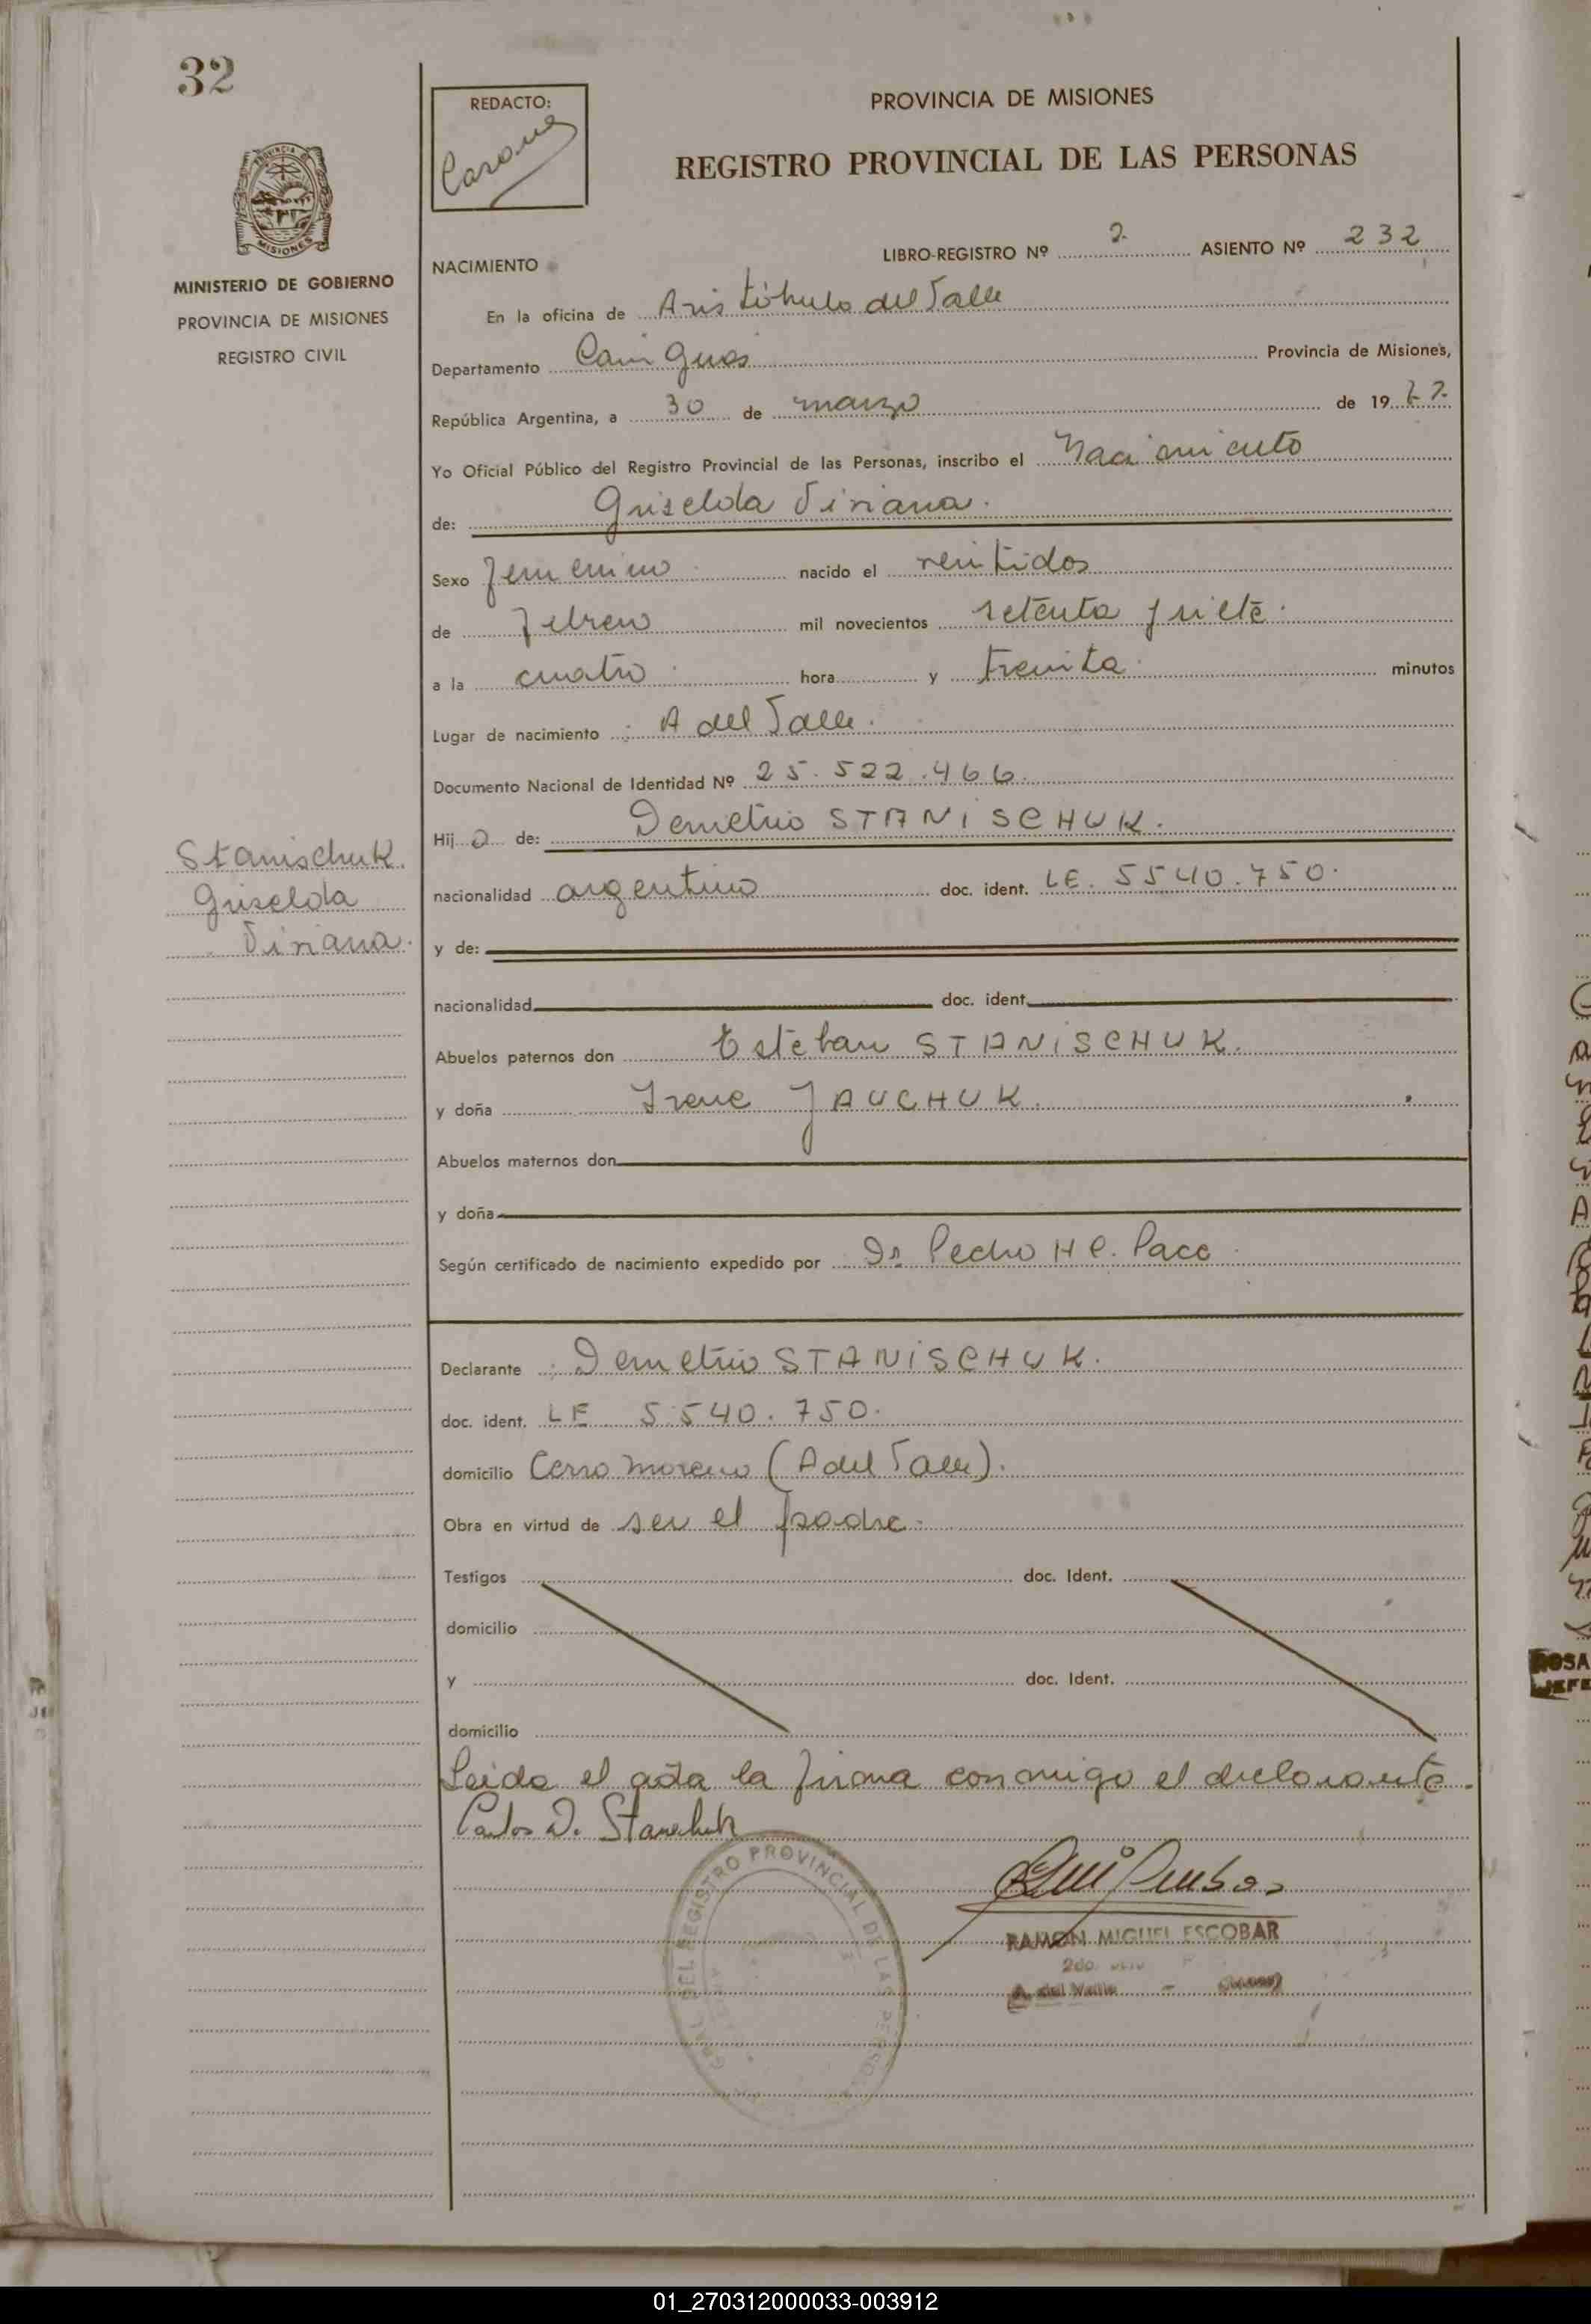 32
REDACTO:
PROVINCIA DE MISIONES
REGISTRO PROVINCIAL DE LAS PERSONAS
PROVINCIA DE
MISIONES
MINISTERIO DE GOBIERNO
PROVINCIA DE MISIONES
REGISTRO CIVIL
LIBRO-REGISTRO Nº 2 ASIENTO Nº 232
NACIMIENTO
En la oficina de Aristóbulo del Valle
Departamento Cainguas Provincia de Misiones,
República Argentina, a 30 de marzo de 1977
Yo Oficial Público del Registro Provincial de las Personas, inscribo el Nacimiento
de: Griselda Viviana.
Sexo femenino nacido el veintidos
de febrero mil novecientos setenta y siete.
a la cuatro hora y treinta minutos
Lugar de nacimiento : A del Valle.
Documento Nacional de Identidad Nº 25.522.466.
Hij a de: Demetrio STANISCHUK.
Stanischuk.
Griselda
Viviana.
nacionalidad argentino doc. ident. LE. 5540.750.
y de:
nacionalidad doc. ident.
Abuelos paternos don Esteban STANISCHUK.
y doña Irene JAUCHUK.
Abuelos maternos don
y doña
Según certificado de nacimiento expedido por Dr Pedro H C. Pace
Declarante : Demetrio STANISCHUK.
doc. ident. LE 5.540.750.
domicilio Cerro Moreno (A del Valle).
Obra en virtud de ser el padre.
Testigos doc. Ident.
domicilio
y doc. Ident.
domicilio
Leida el acta la firma conmigo el declarante.
Carlos D.
DEL REGISTRO PROVINCIAL DE LAS PERSONAS
RAMON MIGUEL ESCOBAR
A. del Valle -
01_270312000033-003912